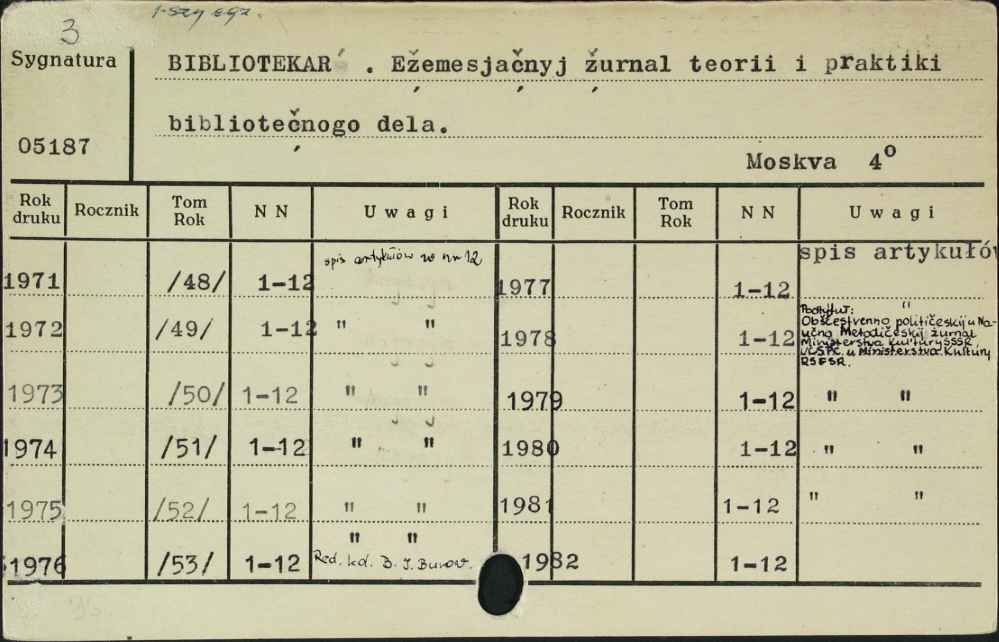 3
1-szy egz.
Sygnatura
05187
BIBLIOTEKAR' . Ežemesjačnyj žurnal teorii i praktiki
bibliotečnogo dela.
Moskva 4º
Rok druku Rocznik Tom Rok N N Uwagi Rok druku Rocznik Tom Rok N N Uwagi
1971 /48/ 1-12 spis artykułów w nr 12 1977 1-12 spis artykułów
1972 /49/ 1-12 " " 1978 1-12 "
Podtytuł:
Obščestvenno političeskij u Na-
učno Metodičeskij žurnal
Ministerstva Kultury SSSR
VCSPC u Ministerstva Kultury
RSFSR.
1973 /50/ 1-12 " " 1979 1-12 " "
1974 /51/ 1-12 " " 1980 1-12 " "
1975 /52/ 1-12 " " 1981 1-12 " "
" "
1976 /53/ 1-12 Red. kol. B. I. Burov. 1982 1-12